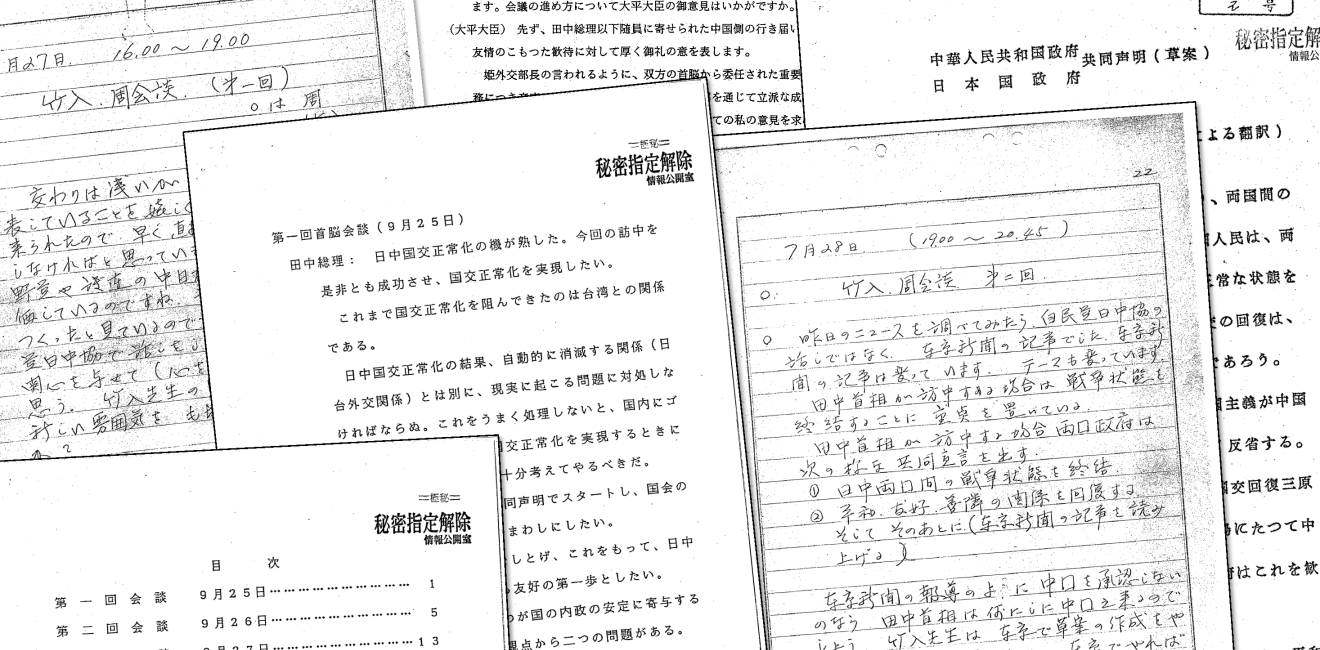 月27日. 16.00 〜 19.00
竹入.周会談.(第一回)
○は周
交わりは浅いが
表していることを嬉しく
来られたので、早く直
しなければと思ってい
つくったと見ているので
思う. 竹入先生の
新しい雰囲気を
ます。会議の進め方について大平大臣の御意見はいかがですか。
(大平大臣) 先ず、田中総理以下随員に寄せられた中国側の行き届い
友情のこもつた歓待に対して厚く御礼の意を表します。
姫外交部長の言われるように、双方の首脳から委任された重要
を通じて立派な成
ての私の意見を求
中華人民共和国政府
日本国政府
共同声明(草案)
秘密指定解
情報公
による翻訳)
、両国間の
人民は、両
正常な状態を
の回復は、
であろう。
主義が中国
反省する。
国交回復三原
にたつて中
はこれを歓
極秘
秘密指定解除
情報公開室
第一回首脳会談(9月25日)
田中総理: 日中国交正常化の機が熟した。今回の訪中を
是非とも成功させ、国交正常化を実現したい。
これまで国交正常化を阻んできたのは台湾との関係
である。
日中国交正常化の結果、自動的に消滅する関係(日
台外交関係)とは別に、現実に起こる問題に対処しな
ければならぬ。これをうまく処理しないと、国内にゴ
交正常化を実現するときに
十分考えてやるべきだ。
同声明でスタートし、国会の
まわしにしたい。
しとげ、これをもって、日中
友好の第一歩としたい。
が国の内政の安定に寄与する
見点から二つの問題がある。
極秘
秘密指定解除
情報公開室
目 次
第一回会談 9月25日………………………… 1
第二回会談 9月26日………………………… 5
13
22
7月28日 (19.00 〜 20.45)
○. 竹入.周会談 第二回.
○ 昨日のニュースを調べてみたら、自民党日中協の
話しではなく、東京新聞の記事でした.東京新
聞の記事は乗っています. テースも乗っています.
田中首相が訪中する場合は戦争状態を
終結することに重点を置いている.
田中首相が訪中する場合両国政府は
次の様な共同宣言を出す.
① 日中両国間の戦争状態を終結.
② 平和、友好、善隣の関係を回復する.
そして そのあとに(東京新聞の記事を読み
上げる)
東京新聞の報導のように中国を承認しない
のなら 田中首相は何にしに中国を来るので
しょう. 竹入先生は 東京で草案の作成をや